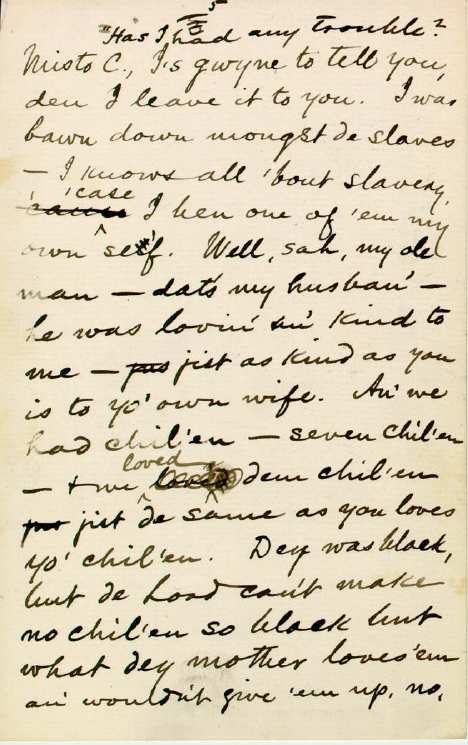 5
"Has I had any trouble?
Misto C., I's gwyne to tell you,
den I leave it to you. I was
bawn down mongst de slaves
— I knows all 'bout slavery,
'case
cause I ben one of 'em my
own se'f. Well, sah, my ole
man — dat's my husban' —
he was lovin' an' kind to
me — jus jist as kind as you
is to yo' own wife. An' we
had chil'en — seven chil'en
loved
— & we dem chil'en
jus jist de same as you loves
yo' chil'en. Dey was black,
but de Lord can't make
no chil'en so black but
what dey mother loves 'em
an' wouldn't give 'em up, no,